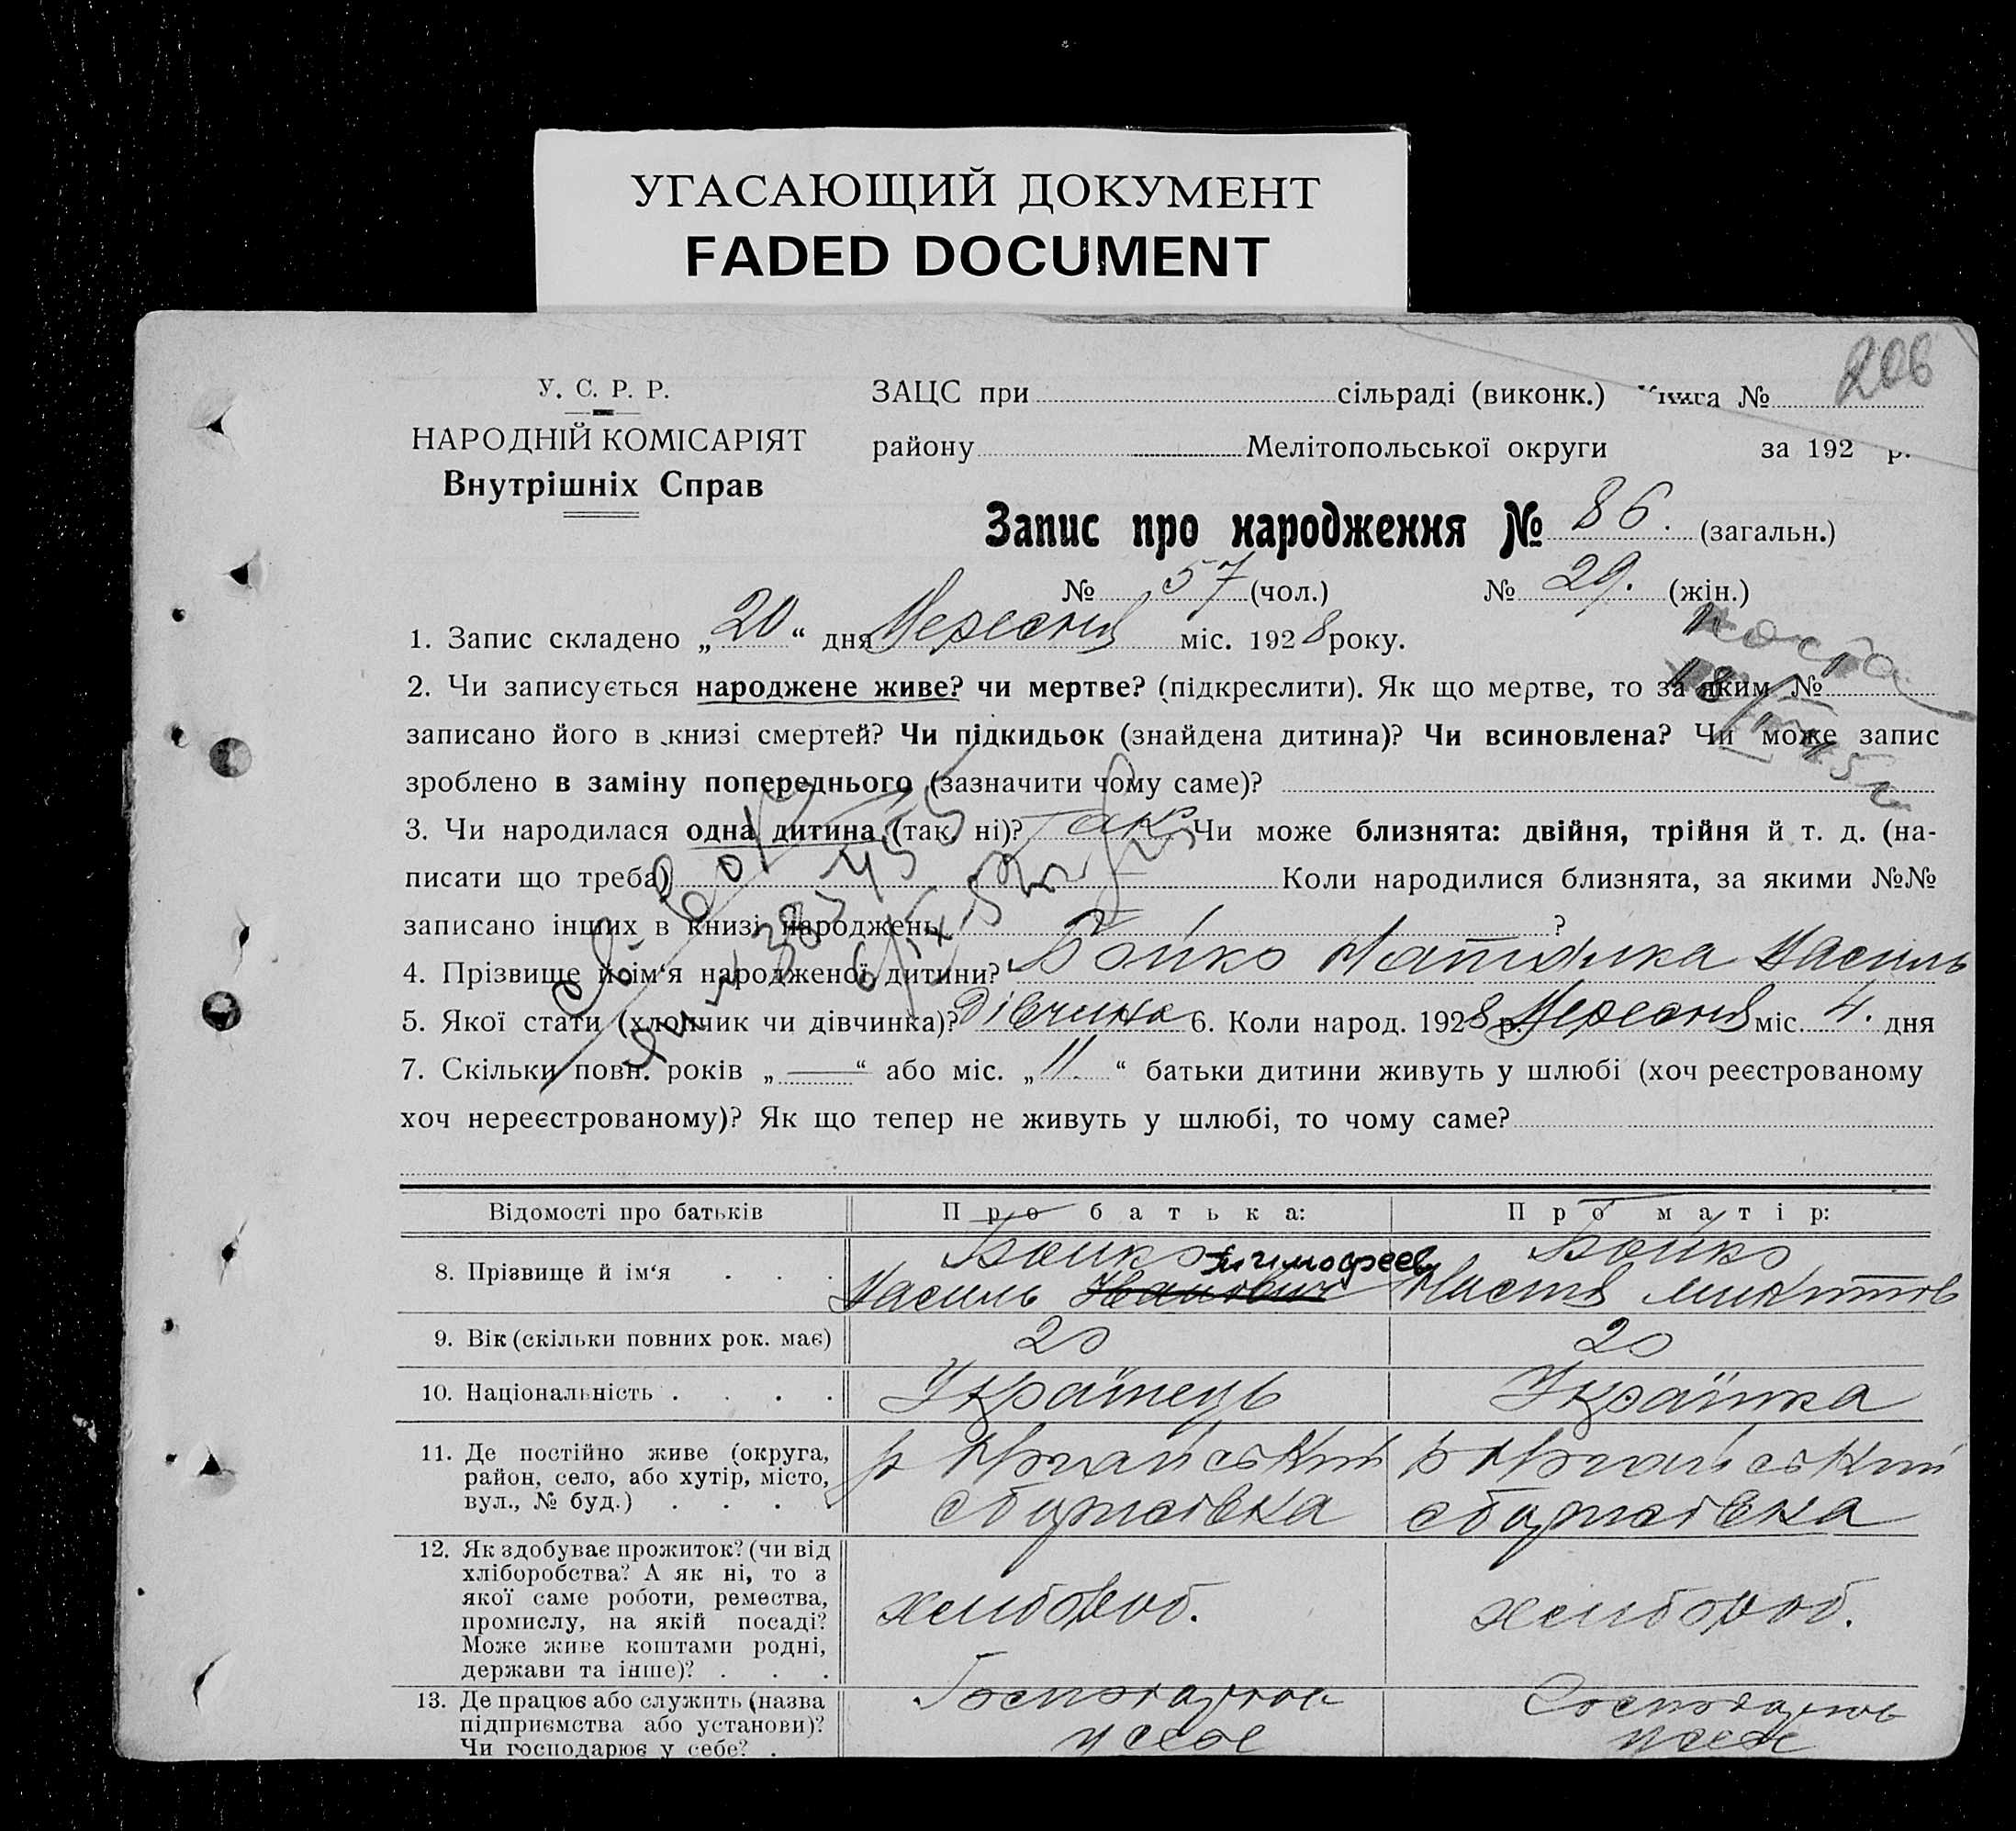 УГАСАЮЩИЙ ДОКУМЕНТ
FADED DOCUMENT
206
У. С. Р. Р.
НАРОДНІЙ КОМІСАРІЯТ
Внутрішніх Справ
ЗАЦС при сільраді (виконк.) Книга №
району Мелітопольської округи за 192 р.
Запис про народження № 86. (загальн.)
№ 57 (чол.) № 29. (жін.)
1. Запис складено „20“ дня Вересня міс. 1928 року.
2. Чи записується народжене живе? чи мертве? (підкреслити). Як що мертве, то за яким №
записано його в книзі смертей? Чи підкидьок (знайдена дитина)? Чи всиновлена? Чи може запис
зроблено в заміну попереднього (зазначити чому саме)?
3. Чи народилася одна дитина (так, ні)? Так Чи може близнята: двійня, трійня й т. д. (на-
писати що треба) Коли народилися близнята, за якими №№
записано інших в книзі народжень ?
4. Прізвище й ім‘я народженої дитини? Бойко Василь
5. Якої стати (хлопчик чи дівчинка)? Дівчина 6. Коли народ. 1928 р. Вересня міс. 4. дня
7. Скільки повн. років „—“ або міс. „11.“ батьки дитини живуть у шлюбі (хоч реєстрованому
хоч нереєстрованому)? Як що тепер не живуть у шлюбі, то чому саме?
Відомості про батьків Про батька: Про матір:
8. Прізвище й ім‘я Бойко Тимофеев Василь Иванович Бойко Настя
9. Вік (скільки повних рок. має) 20 20
10. Національність Українець Українка
11. Де постійно живе (округа,
район, село, або хутір, місто,
вул., № буд.)
12. Як здобуває прожиток? (чи від
хліборобства? А як ні, то з
якої саме роботи, ремества,
промислу, на якій посаді?
Може живе коштами родні,
держави та інше)? хлибороб. хлибороб.
13. Де працює або служить (назва
підприємства або установи)?
Чи господарює у себе?